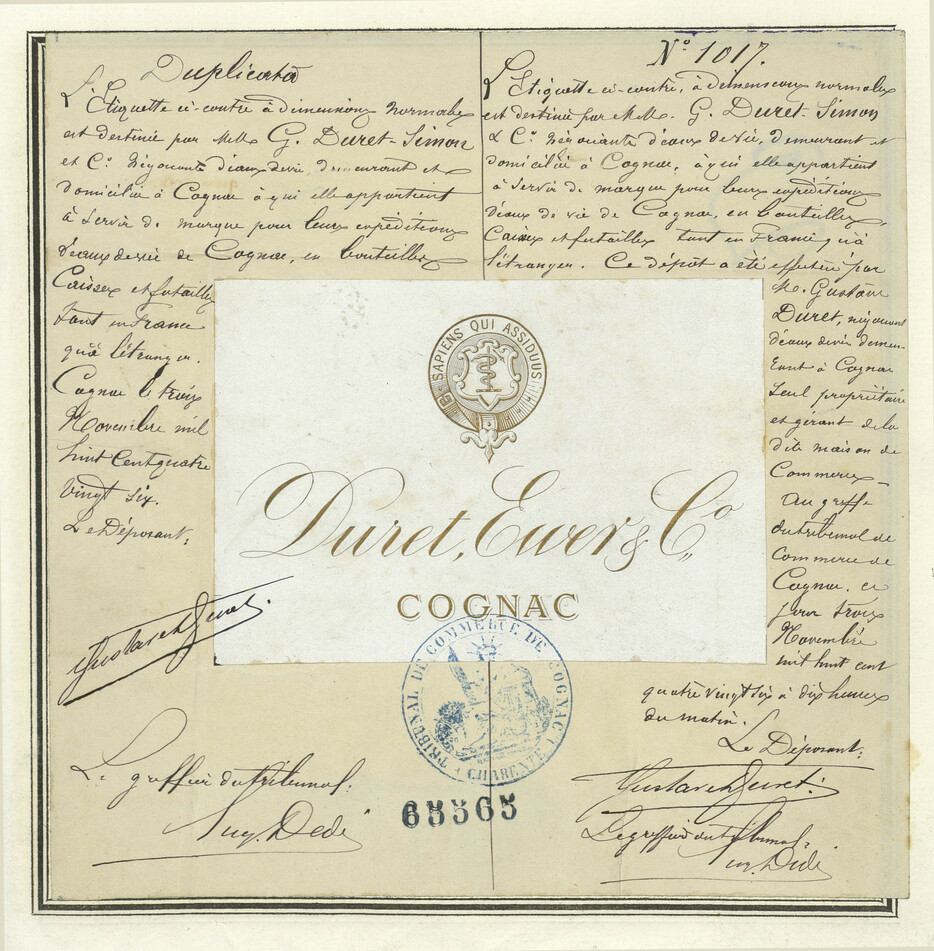 Duplicata
L'Etiquette ci-contre à dimensions normales
est destinée par MM. G. Duret-Simon
et Cie Négociants d'eaux de vie, demeurant et
domiciliés à Cognac à qui elle appartient
à servir de marque pour leurs expéditions
d'eaux de vie de Cognac, en bouteilles
Caisses et futailles
tant en France
qu'à l'étranger.
Cognac le trois
Novembre mil
huit cent quatre
vingt six.
Le Déposant:
Gustave Duret
Le greffier du tribunal:
Aug. Dedé
No 1017.
L'Etiquette ci-contre, à dimensions normales
est destinée par MM. G. Duret-Simon
& Cie Négociants d'eaux de vie, demeurant et
domiciliés à Cognac, à qui elle appartient
à servir de marque pour leurs expéditions
d'eaux de vie de Cognac, en bouteilles,
Caisses et futailles tant en France qu'à
l'étranger. Ce dépôt a été effectué par
M. Gustave
Duret, négociant
d'eaux de vie demeu-
rant à Cognac
seul propriétaire
et gérant de la
dite maison de
Commerce
au greffe
du tribunal de
Commerce de
Cognac, ce
jour trois
Novembre
mil huit cent
quatre vingt six à dix heures
du matin.
Le Déposant:
Gustave Duret
Le greffier du tribunal:
Aug. Dedé
SAPIENS QUI ASSIDUUS
Duret, Ewer & Co
COGNAC
TRIBUNAL DE COMMERCE DE COGNAC
CHARENTE
65565